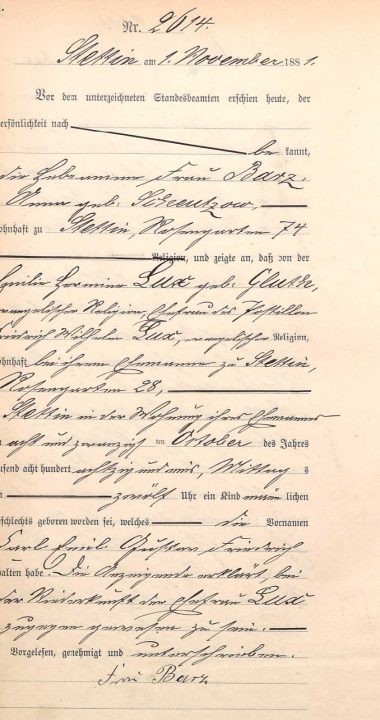 Nr. 2614.
Stettin am 1. November 1881.
Vor dem unterzeichneten Standesbeamten erschien heute, der
ersönlichkeit nach
be kannt,
die Hebeamme Frau Barz,
Anna geb:
ohnhaft zu Stettin, Rosengarten 74
Religion, und zeigte an, daß von der
Emilie Hermine Lux geb: Gluth,
evangelischer Religion, Ehefrau des Postillon
Friedrich Wilhelm Lux, evangelischer Religion,
ohnhaft bei ihrem Ehemanne zu Stettin,
Rosengarten 28,
Stettin in der Wohnung ihres Ehemannes
acht und zwanzigsten October des Jahres
usend acht hundert achtzig und eins, Mittag s
zwölf Uhr ein Kind männ lichen
eschlechts geboren worden sei, welches die Vornamen
Carl Emil Gustav Friedrich
halten habe. Die Anzeigende erklärt, bei
der Niederkunft der Ehefrau Lux
zugegen gewesen zu sein.
Vorgelesen, genehmigt und unterschrieben.
Frau Barz